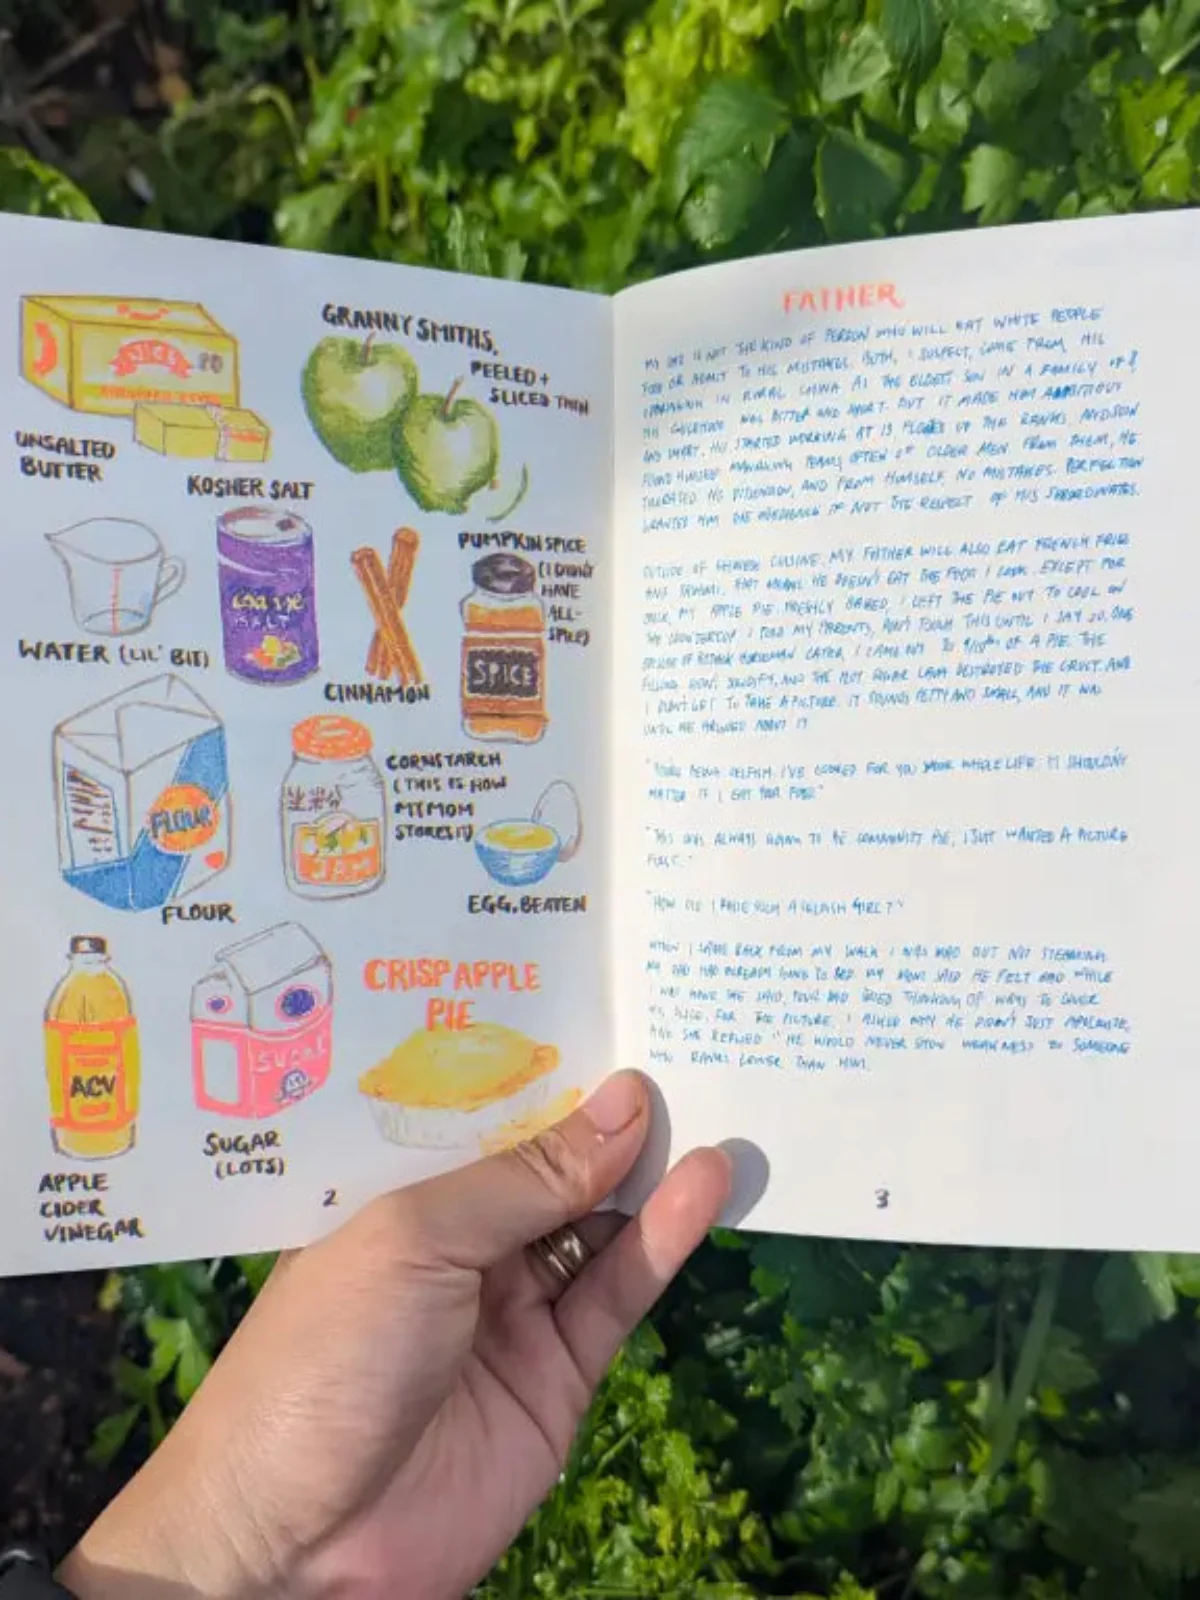 UNSALTED
BUTTER
GRANNY SMITHS,
PEELED +
SLICED THIN
KOSHER SALT
SALT
WATER (LIL' BIT)
CINNAMON
PUMPKIN SPICE
(I DIDN'T
HAVE
ALL-
SPICE)
SPICE
FLOUR
FLOUR
CORNSTARCH
(THIS IS HOW
MY MOM
STORES IT)
JAM
EGG, BEATEN
ACV
APPLE
CIDER
VINEGAR
SUGAR
SUGAR
(LOTS)
CRISP APPLE
PIE
2
FATHER
MY DAD IS NOT THE KIND OF PERSON WHO WILL EAT WHITE PEOPLE
FOOD OR ADMIT TO HIS MISTAKES. BOTH, I SUSPECT, COME FROM HIS
UPBRINGING IN RURAL CHINA AS THE ELDEST SON IN A FAMILY OF
HIS CHILDHOOD WAS BITTER AND SHORT. BUT IT MADE HIM AMBITIOUS
AND SMART. HE STARTED WORKING AT 13 UP THE RANKS AND SOON
FOUND HIMSELF MANAGING TEAMS, OFTEN OF OLDER MEN. FROM THEM, HE
TOLERATED NO DISSENSION, AND FROM HIMSELF NO MISTAKES. PERFECTION
GRANTED HIM THE OBEDIENCE IF NOT THE RESPECT OF HIS SUBORDINATES.
OUTSIDE OF CHINESE CUISINE, MY FATHER WILL ALSO EAT FRENCH FRIES
THAT MEANS HE DOESN'T EAT THE FOOD I COOK. EXCEPT FOR
MY APPLE PIE. FRESHLY BAKED, I LEFT THE PIE OUT TO COOL ON
THE COUNTERTOP. I TOLD MY PARENTS, DON'T TOUCH THIS UNTIL I SAY SO. ONE
EPISODE OF BOJACK HORSEMAN LATER, I CAME OUT TO OF A PIE. THE
FILLING DIDN'T SOLIDIFY, AND THE HOT SUGAR LAVA DESTROYED THE CRUST. AND
I DIDN'T GET TO TAKE A PICTURE. IT SOUNDS PETTY AND SMALL, AND IT WAS
UNTIL WE ARGUED ABOUT IT
"YOU'RE BEING SELFISH. I'VE COOKED FOR YOU YOUR WHOLE LIFE. IT SHOULDN'T
MATTER IF I EAT YOUR FOOD."
"THIS WAS ALWAYS GOING TO BE COMMUNIST PIE, I JUST WANTED A PICTURE
FIRST."
"HOW DID I RAISE SUCH A SELFISH GIRL?"
WHEN I CAME BACK FROM MY WALK I WAS MAD BUT NOT STEAMING.
MY DAD HAD ALREADY GONE TO BED. MY MOM SAID HE FELT BAD WHILE
I WAS GONE. SHE SAID, YOUR DAD TRIED THINKING OF WAYS TO COVER
HIS SLICE, FOR THE PICTURE. I ASKED WHY HE DIDN'T JUST APOLOGIZE,
AND SHE REPLIED "HE WOULD NEVER SHOW WEAKNESS TO SOMEONE
WHO RANKS LOWER THAN HIM."
3